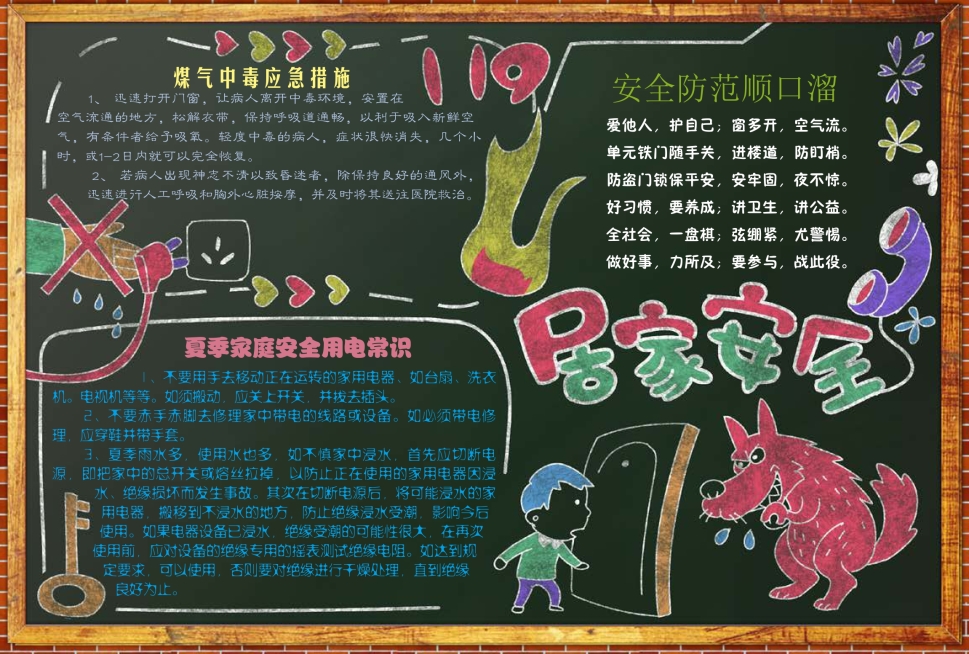 煤气中毒应急措施
1、 迅速打开门窗，让病人离开中毒环境，安置在
空气流通的地方，松解衣带，保持呼吸道通畅，以利于吸入新鲜空
气，有条件者给予吸氧。轻度中毒的病人，症状很快消失，几个小
时，或1—2日内就可以完全恢复。
2、 若病人出现神志不清以致昏迷者，除保持良好的通风外，
迅速进行人工呼吸和胸外心脏按摩，并及时将其送往医院救治。
119
安全防范顺口溜
爱他人，护自己；窗多开，空气流。
单元铁门随手关，进楼道，防盯梢。
防盗门锁保平安，安牢固，夜不惊。
好习惯，要养成；讲卫生，讲公益。
全社会，一盘棋；弦绷紧，尤警惕。
做好事，力所及；要参与，战此役。
居家安全
夏季家庭安全用电常识
1、不要用手去移动正在运转的家用电器、如台扇、洗衣
机。电视机等等。如须搬动、应关上开关、并拔去插头。
2、不要赤手赤脚去修理家中带电的线路或设备。如必须带电修
理、应穿鞋并带手套。
3、夏季雨水多、使用水也多、如不慎家中浸水、首先应切断电
源、即把家中的总开关或熔丝拉掉、以防止正在使用的家用电器因浸
水、绝缘损坏而发生事故。其次在切断电源后、将可能浸水的家
用电器、搬移到不浸水的地方、防止绝缘浸水受潮、影响今后
使用。如果电器设备已浸水、绝缘受潮的可能性很大、在再次
使用前、应对设备的绝缘专用的摇表测试绝缘电阻。如达到规
定要求、可以使用、否则要对绝缘进行干燥处理、直到绝缘
良好为止。